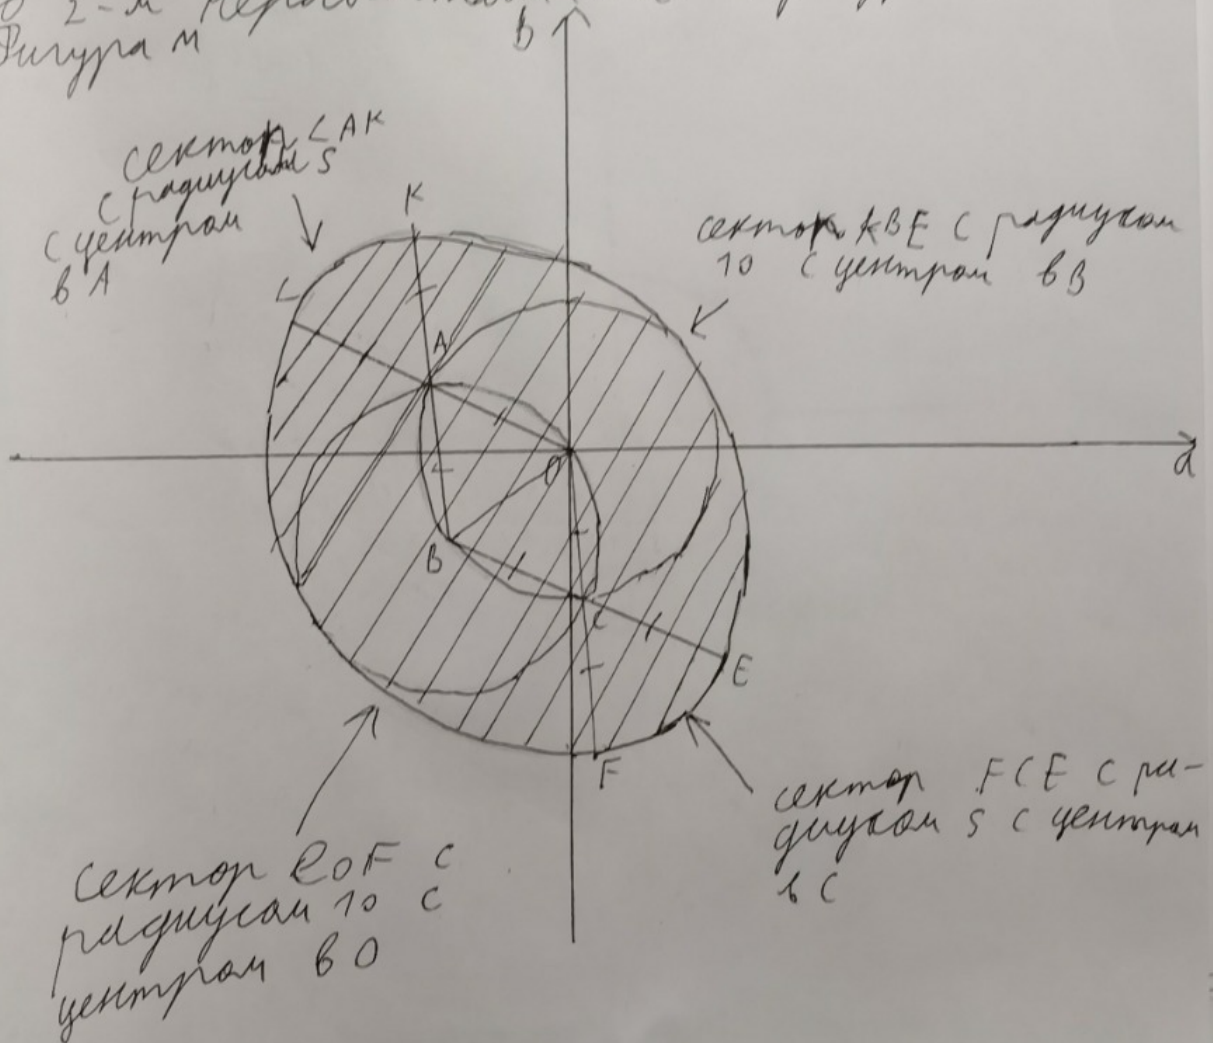 2-м
Фигура М
b
сектор LAK
с радиусом 5
с центром
в A
K
сектор KBE с радиусом
10 с центром в B
L
A
O
a
B
C
E
F
сектор FCE с ра-
диусом 5 с центром
в C
сектор LOF с
радиусом 10 с
центром в O